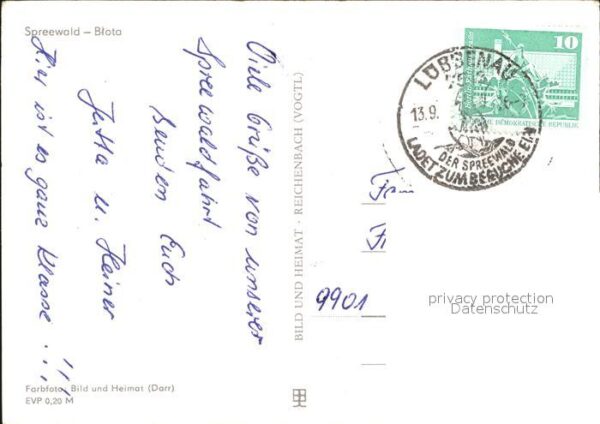 Spreewald – Błota
Viele Grüße von unserer
Spreewaldfahrt
senden Euch
Jutta u. Heiner
Hier ist es ganz Klasse...!!!
Farbfoto: Bild und Heimat (Darr)
EVP 0,20 M
BILD UND HEIMAT · REICHENBACH (VOGTL)
10
DEMOKRATISCHE REPUBLIK
LÜBBENAU
13.9.
DER SPREEWALD
LADET ZUM BESUCHE EIN
9901
privacy protection
Datenschutz